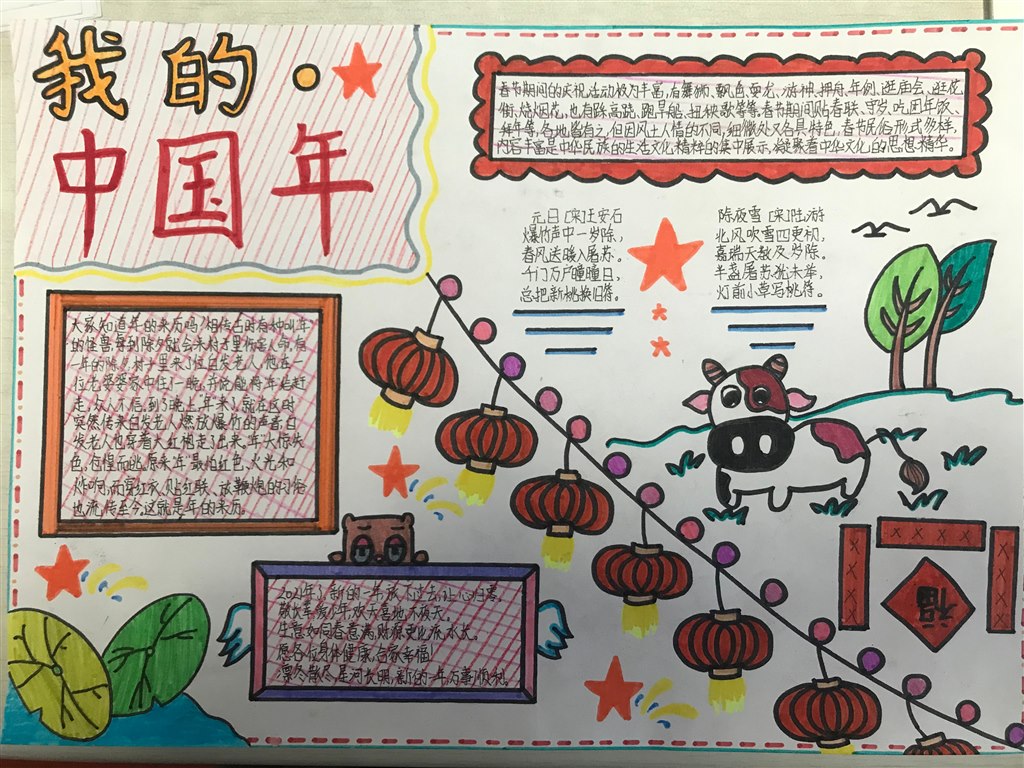 我的·
中国年
春节期间的庆祝活动极为丰富,有舞狮、飘色、舞龙、游神、押舟、年例、逛庙会、逛花
街、烧烟花,也有踩高跷、跑旱船、扭秧歌等等,春节期间贴春联、守岁、吃团年饭、
拜年等,各地皆有之,但因风土人情的不同,细微处又各具特色,春节民俗形式多样,
内容丰富是中华民族的生活文化精粹的集中展示,凝聚着中华文化的思想精华。
元日[宋]王安石
爆竹声中一岁除,
春风送暖入屠苏。
千门万户曈曈日,
总把新桃换旧符。
除夜雪[宋]陆游
北风吹雪四更初,
嘉瑞天教及岁除。
半盏屠苏犹未举,
灯前小草写桃符。
大家知道年的来历吗?相传古时有种叫年
的怪兽,每到除夕就会来村子里伤害人命,有
一年的除夕村里来了位白发老人,他在一
位老婆婆家中住了一晚,并说能将年赶
走,众人不信,到了晚上,年来了,就在这时
突然传来白发老人燃放爆竹的声音,白
发老人也穿着大红袍走了出来,年大惊失
色,仓惶而逃,原来年最怕红色、火光和
炸响,而穿红衣、贴红联、放鞭炮的习俗
也流传至今,这就是年的来历。
2021年了,新的一年
生意如同春意满,财源更比流水长。
愿各位身体健康,合家幸福!
凛冬散尽,星河长明,新的一年万事顺利,
福